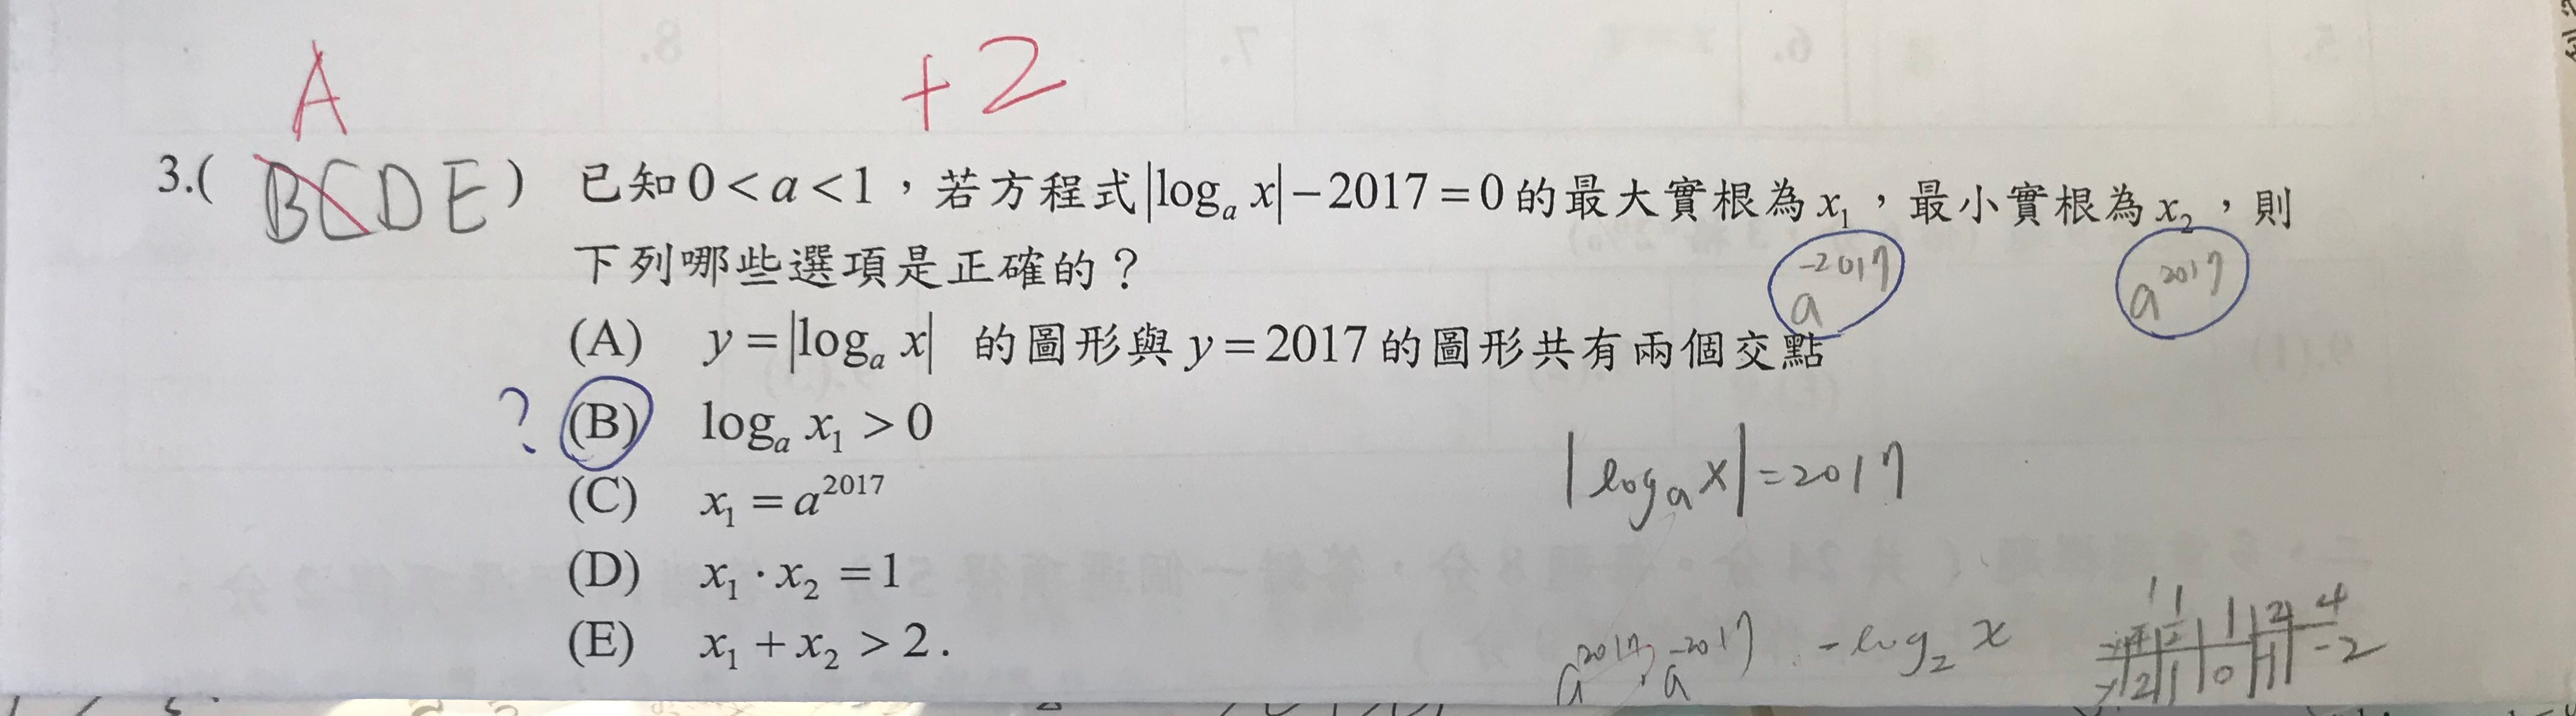 A
+2
3.( BCDE ) 已知 0 < a < 1，若方程式 |logₐ x| − 2017 = 0 的最大實根為 x₁，最小實根為 x₂，則
下列哪些選項是正確的？
a⁻²⁰¹⁷ a²⁰¹⁷
(A) y = |logₐ x| 的圖形與 y = 2017 的圖形共有兩個交點
? (B) logₐ x₁ > 0
(C) x₁ = a²⁰¹⁷
|logₐ x| = 2017
(D) x₁ · x₂ = 1
(E) x₁ + x₂ > 2 .
a²⁰¹⁷, a⁻²⁰¹⁷
−log₂ x
1 2 4
2 1 0 -1 -2